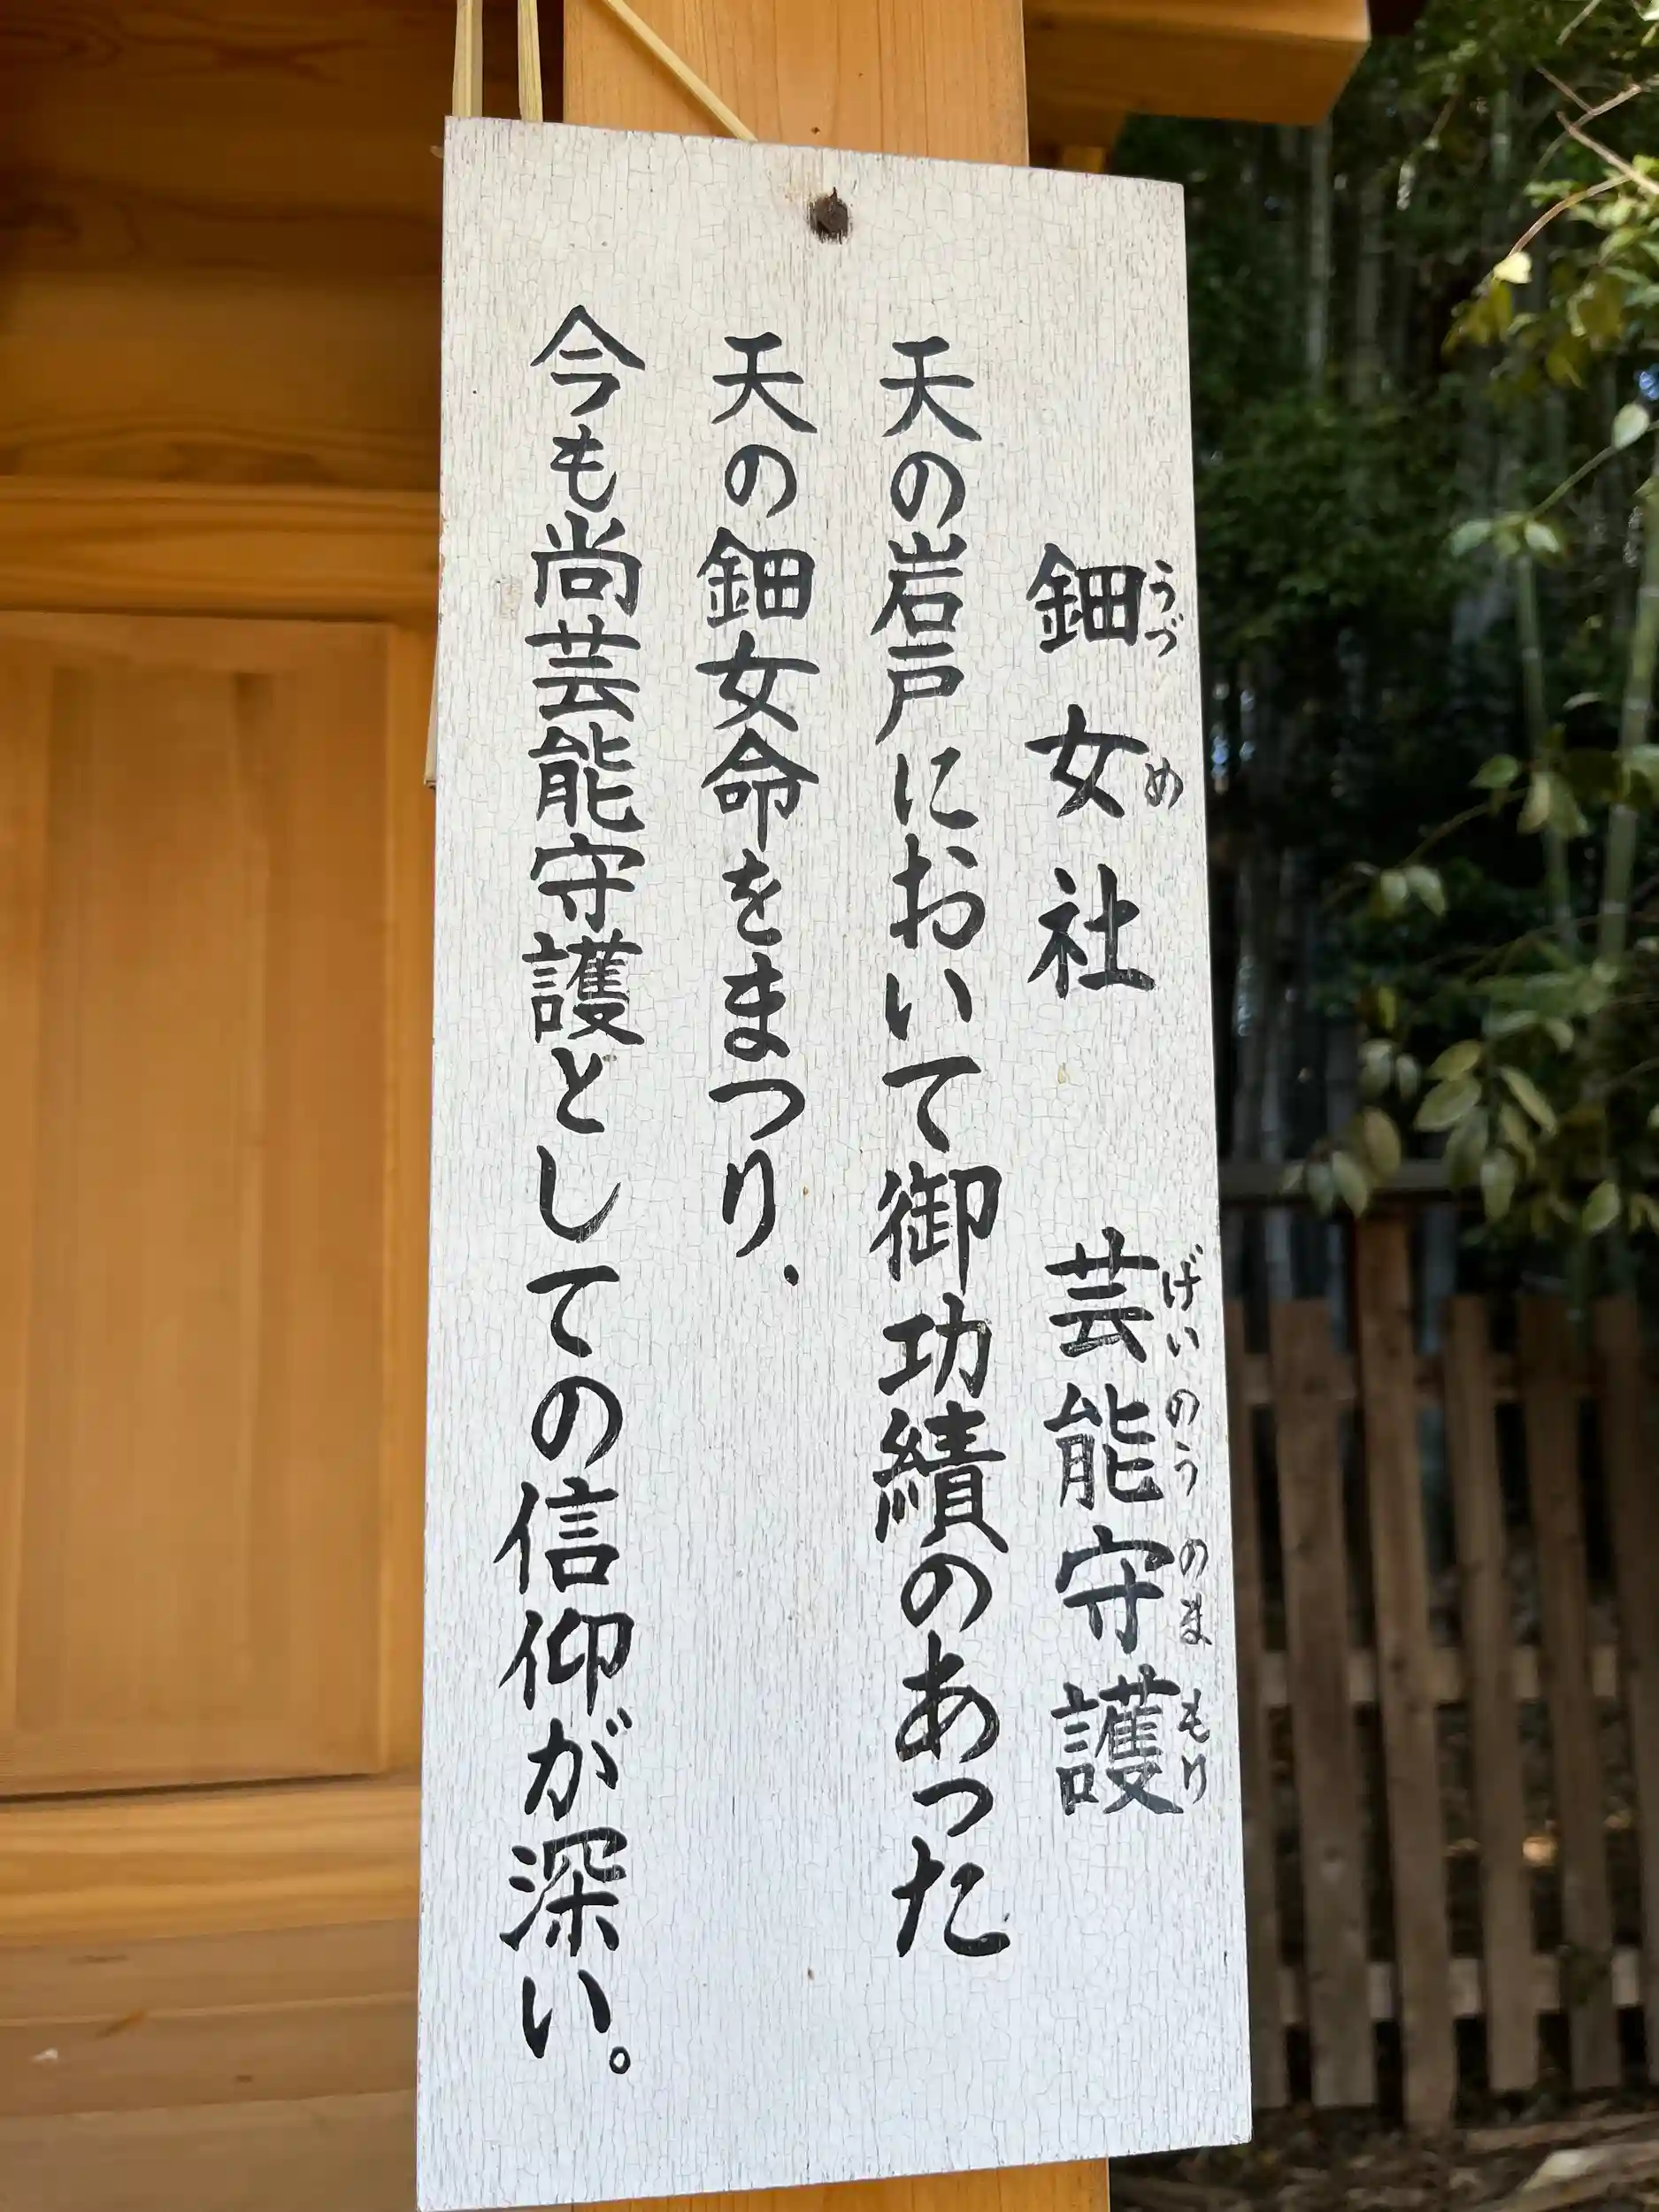 鈿女社　芸能守護
うづめ　げいのうのまもり
天の岩戸において御功績のあった
天の鈿女命をまつり、
今も尚芸能守護としての信仰が深い。